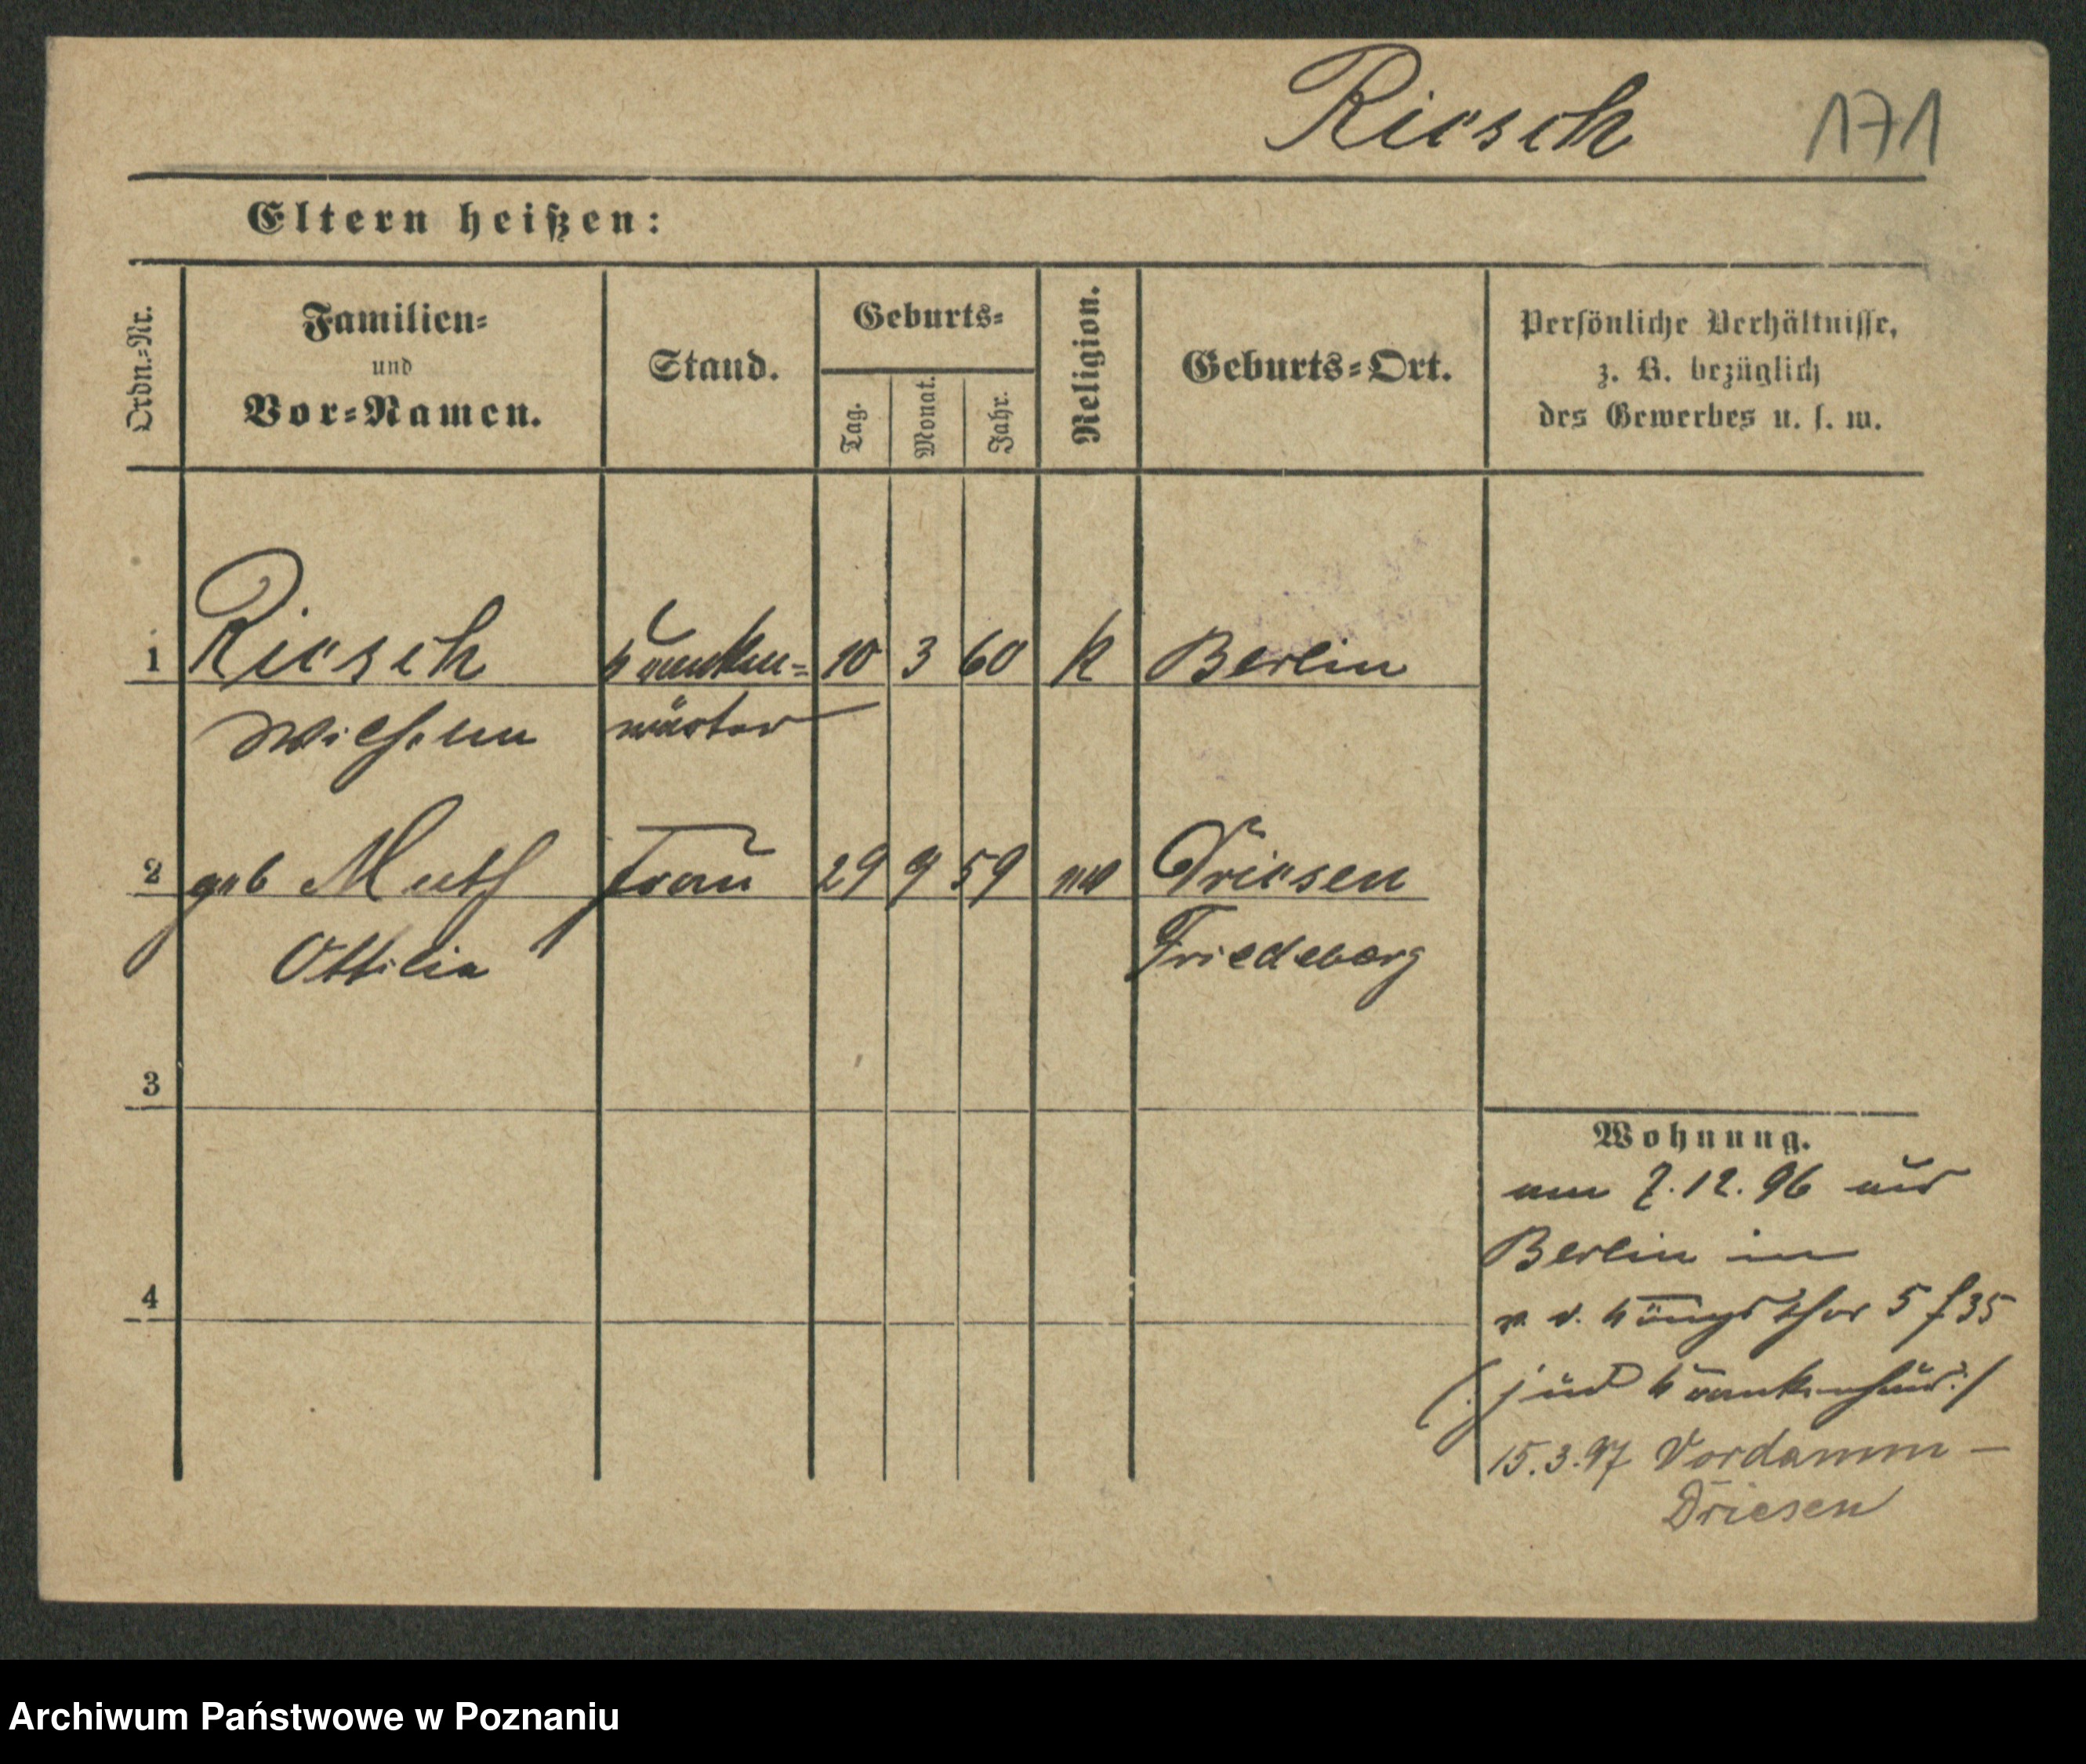 Riesch 171
Eltern heißen:
Ordn.-Nr.
Familien-
und
Vor-Namen.
Stand.
Geburts-
Tag.
Monat.
Jahr.
Religion.
Geburts-Ort.
Persönliche Verhältnisse,
z. B. bezüglich
des Gewerbes u. s. w.
1 Riesch Kranken- 10 3 60 k Berlin
Wilhelm wärter
2 geb Muth Frau 29 9 59 ev Driesen
Ottilie Friedeberg
3
Wohnung.
am 7.12.96 aus
Berlin in
v. d. Königsthor 5 f 35
(: jüd Krankenhaus :)
4
15.3.97 Vordamm -
Driesen
Archiwum Państwowe w Poznaniu